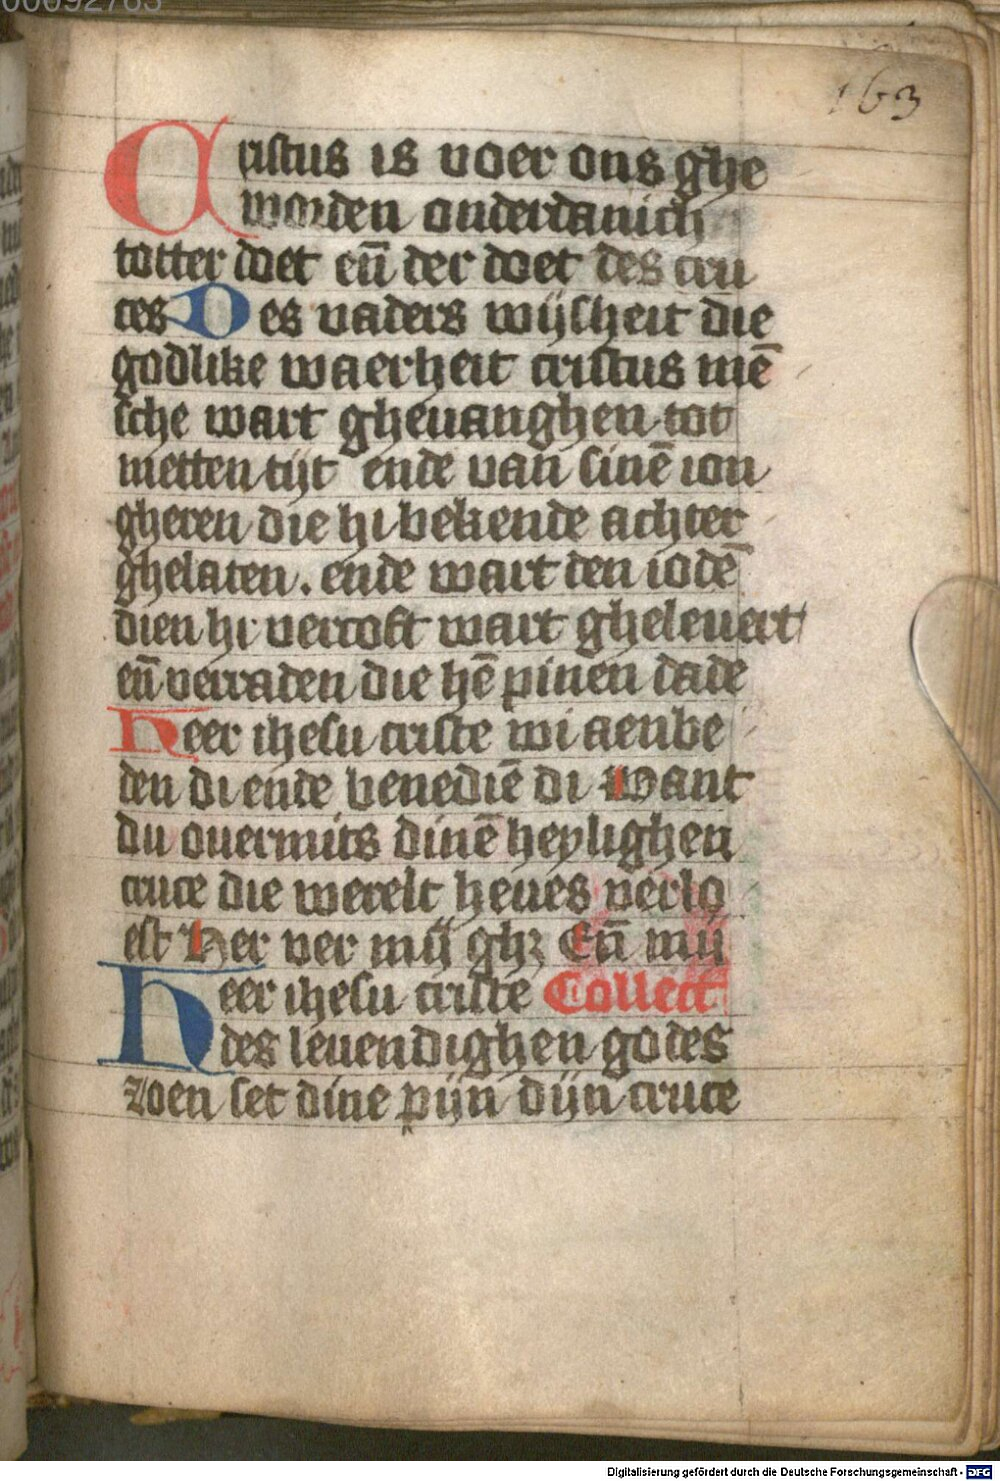 00092785
163
Cristus is voer ons ghe
worden onderdanich
totter doet eñ der doet des cru
ces Des vaders wijsheit die
godlike waerheit cristus mē
sche wart gheuanghen tot
metten tijt ende van sinē ion
gheren die hi bekende achter
ghelaten. ende wart den iodē
dien hi vercoft wart gheleuert
eñ verraden die hē pinen dade
Heer ihesu criste wi aenbe
den di ende benediē di Want
du ouermits dinē heylighen
cruce die werelt heues verlo
est Her ver mij ghꝫ Eñ mij
Heer ihesu criste Collect
des leuendighen godes
zoen set dine pijn dijn cruce
Digitalisierung gefördert durch die Deutsche Forschungsgemeinschaft - DFG